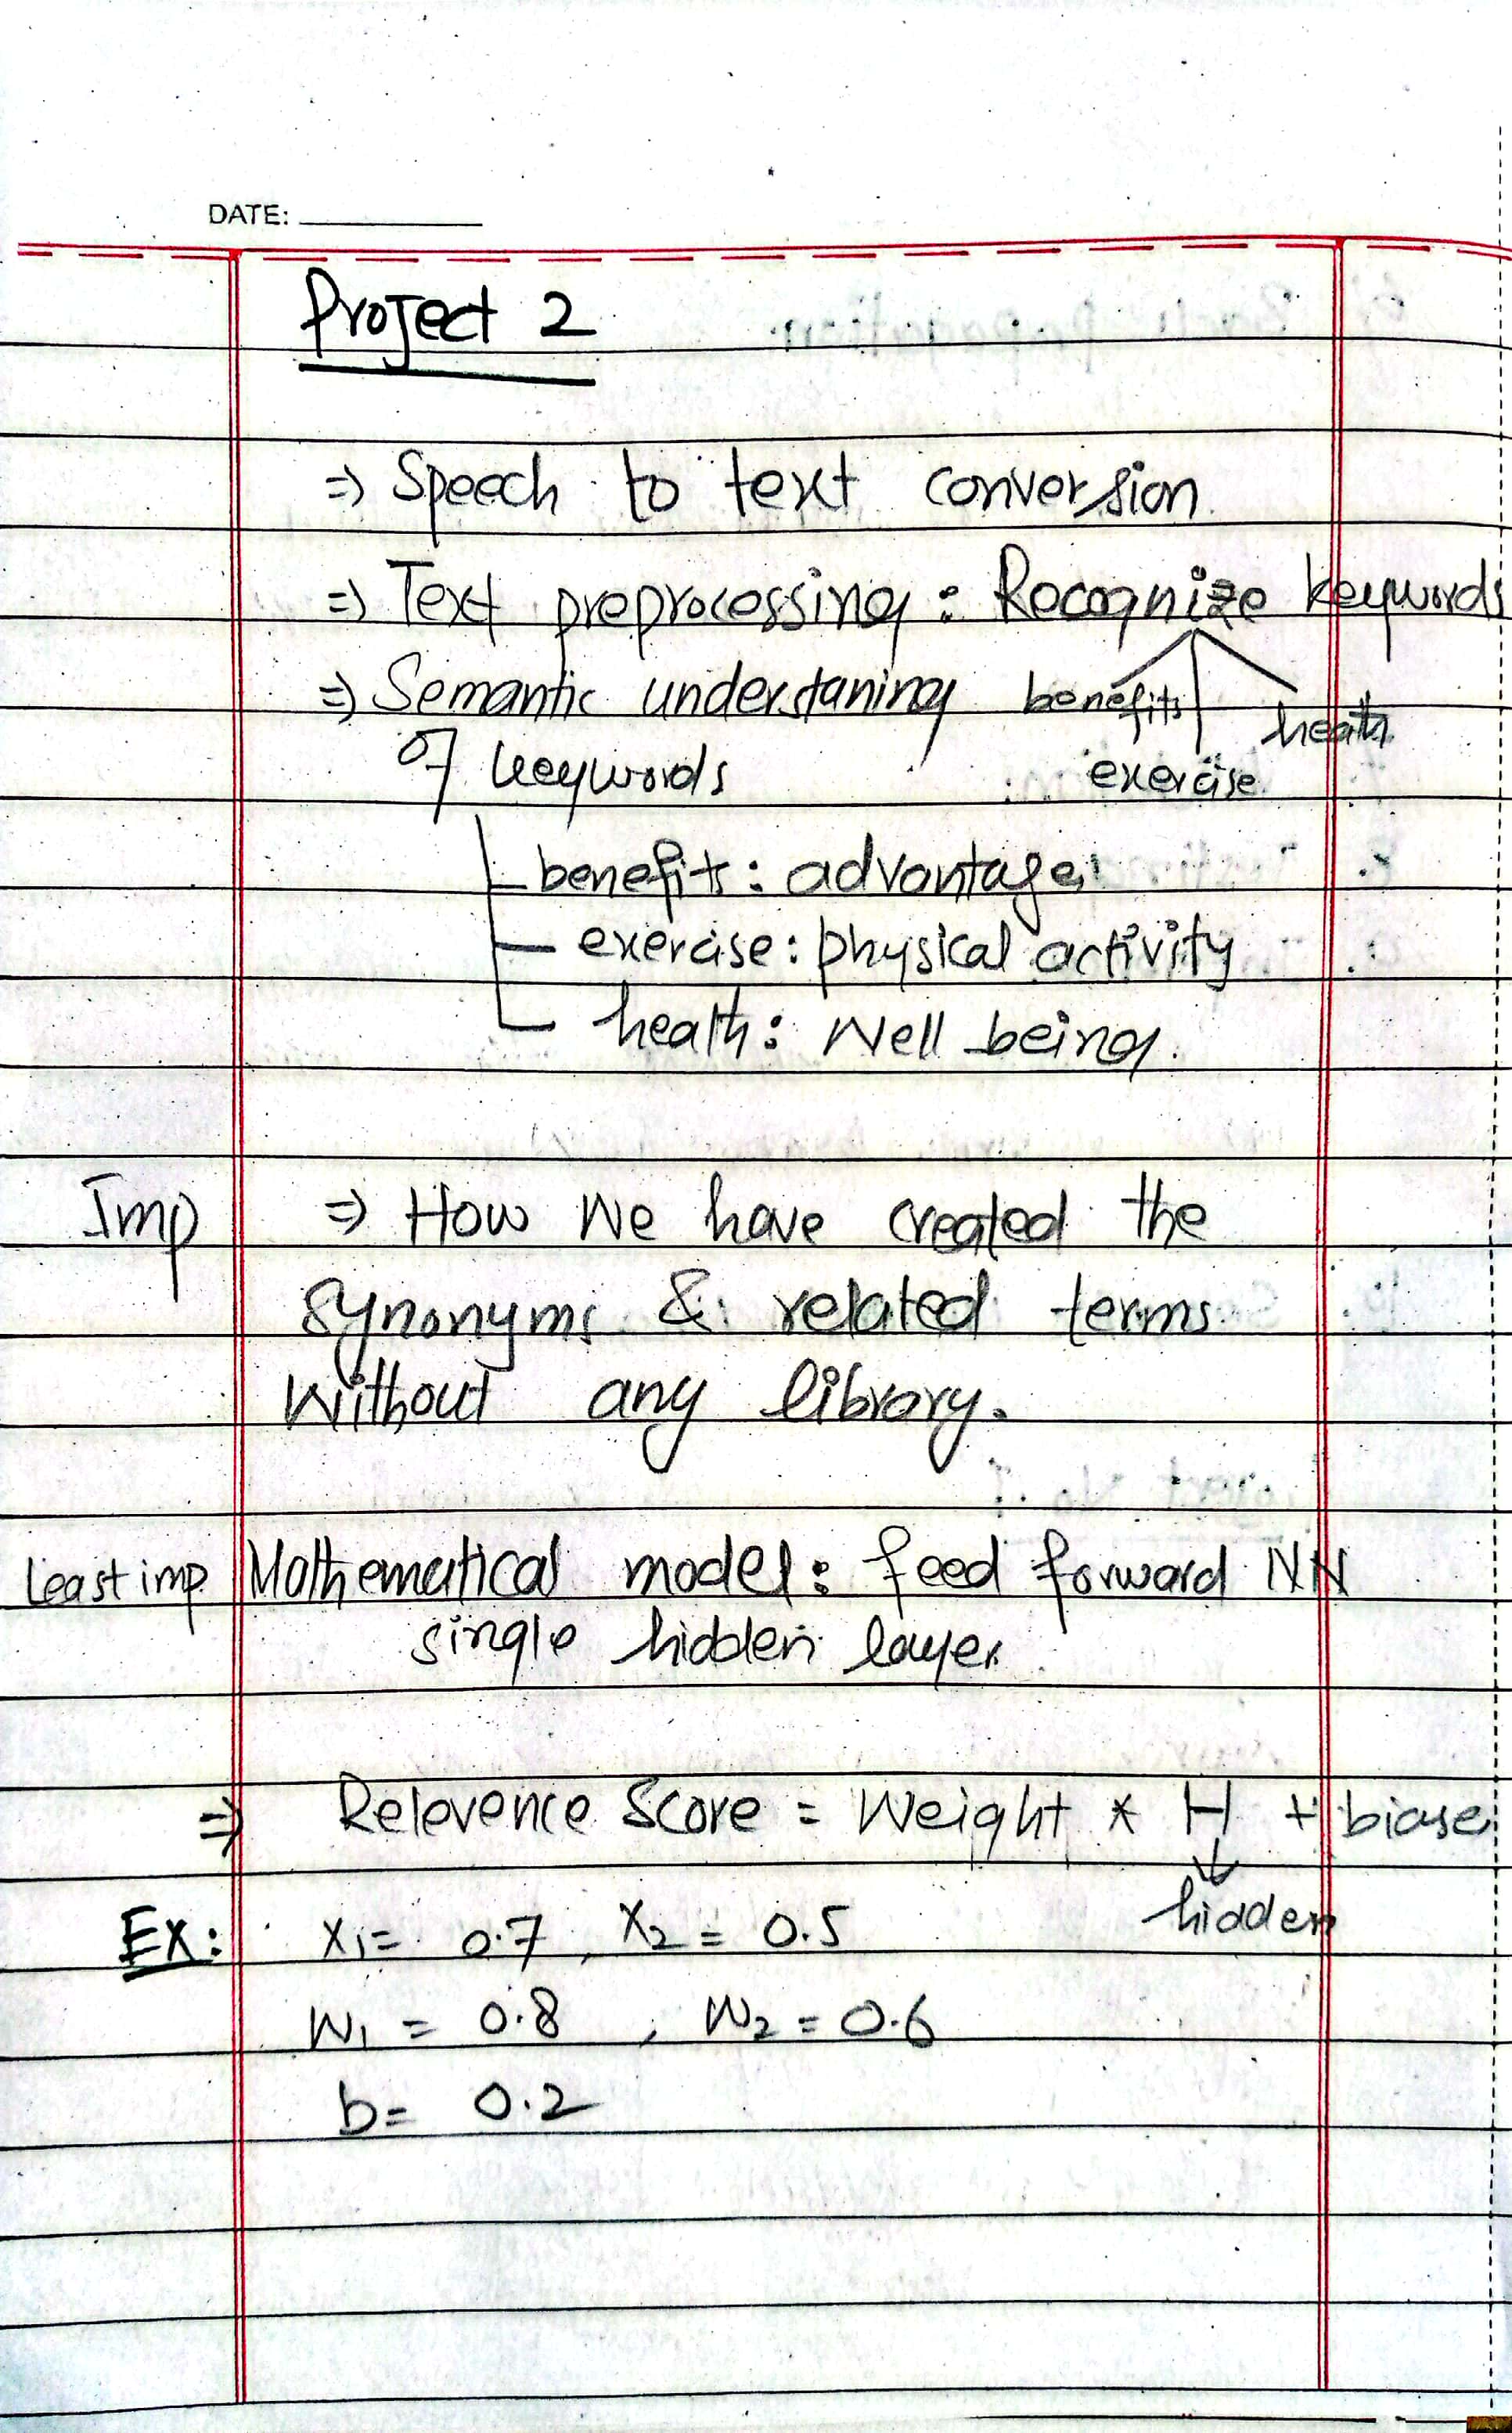 DATE:
Project 2
=> Speech to text conversion
=> Text preprocessing : Recognize keywords
=> Semantic understaning benefits health
of keywords exercise
benefits : advantage
exercise : physical activity
health : Well being.
Imp => How We have created the
synonyms & related terms
without any library.
Least imp. Mathematical model : feed forward NN
single hidden layer
=> Relevence Score = Weight * H + biase
hidden
Ex: x1 = 0.7, x2 = 0.5
W1 = 0.8, W2 = 0.6
b = 0.2